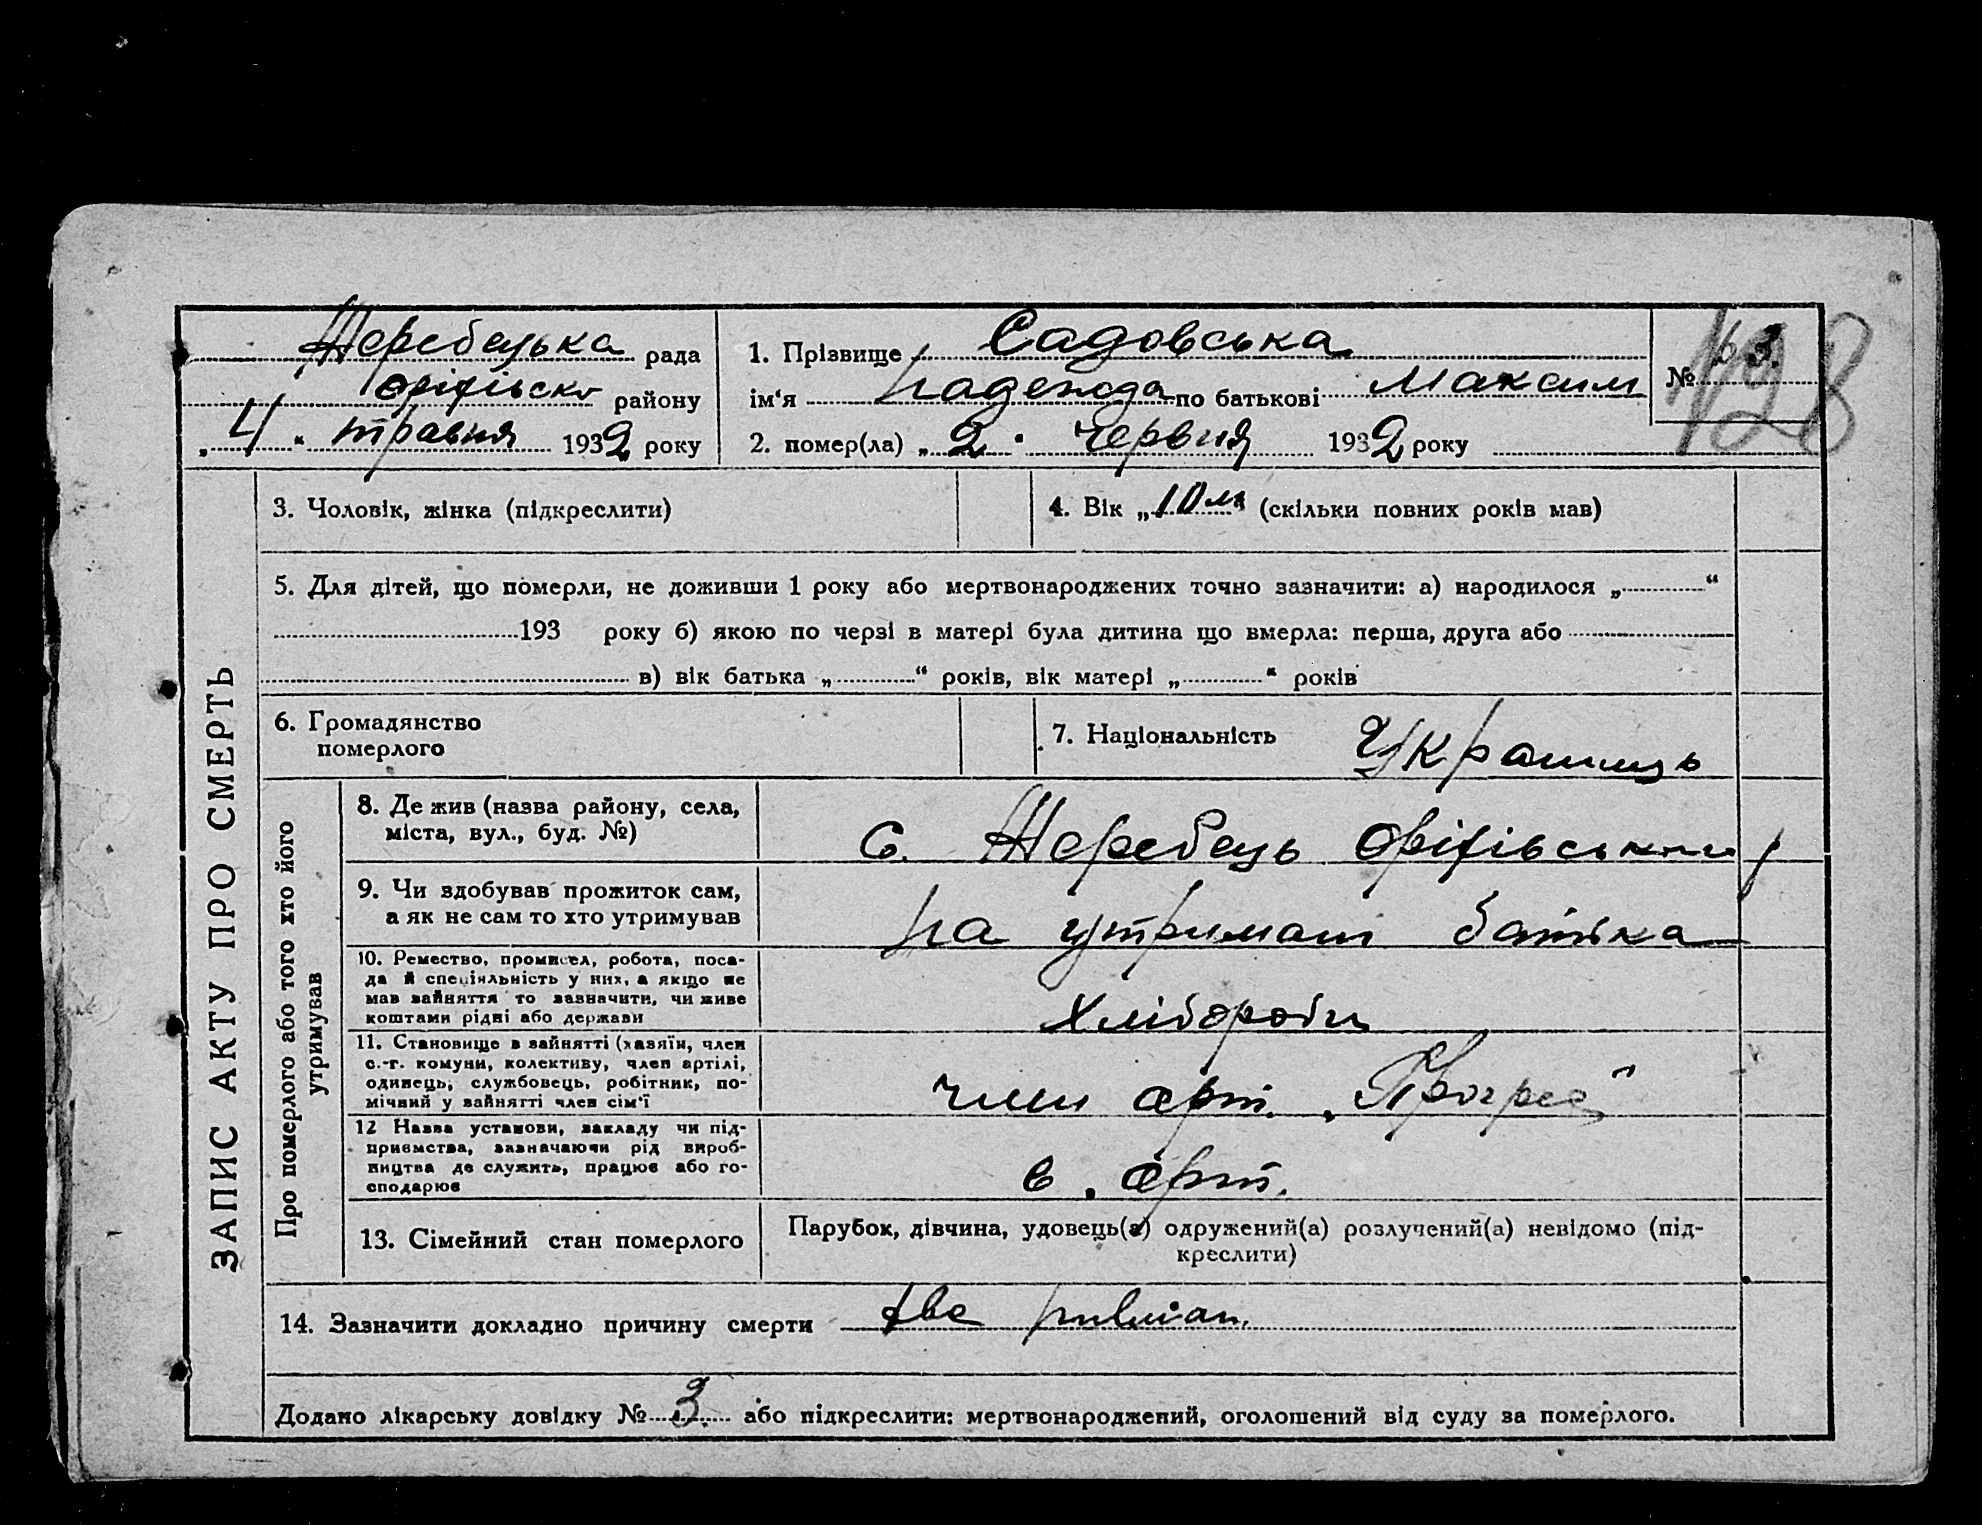 Жеребецька рада
Оріхівсько району
„ 4 “ травня 1932 року
1. Прізвище Садовська
ім‘я Надежда по батькові Максим
2. помер(ла) „ 2 “ червня 1932 року
№ 3.
128
ЗАПИС АКТУ ПРО СМЕРТЬ
3. Чоловік, жінка (підкреслити)
4. Вік „ 10 м “ (скільки повних років мав)
5. Для дітей, що померли, не доживши 1 року або мертвонароджених точно зазначити: а) народилося „ “
193 року б) якою по черзі в матері була дитина що вмерла: перша, друга або
в) вік батька „ “ років, вік матері „ “ років
6. Громадянство
померлого
7. Національність Українець
Про померлого або того хто його
утримував
8. Де жив (назва району, села,
міста, вул., буд. №)
С. Жеребець Оріхівський р
9. Чи здобував прожиток сам,
а як не сам то хто утримував
На утримані батька
10. Ремество, промисел, робота, поса-
да й спеціяльність у них, а якщо не
мав зайняття то зазначити, чи живе
коштами рідні або держави
Хлібороби
11. Становище в зайнятті (хазяїн, член
с.-г. комуни, колективу, член артілі,
одинець, службовець, робітник, по-
мічний у зайнятті член сім‘ї
член арт. „Прогрес"
12 Назва установи, закладу чи під-
приємства, зазначаючи рід вироб-
ництва де служить, працює або го-
сподарює
в. арт.
13. Сімейний стан померлого
Парубок, дівчина, удовець(а) одружений(а) розлучений(а) невідомо (під-
креслити)
14. Зазначити докладно причину смерти tbc pulmon.
Додано лікарську довідку № 3. або підкреслити: мертвонароджений, оголошений від суду за померлого.